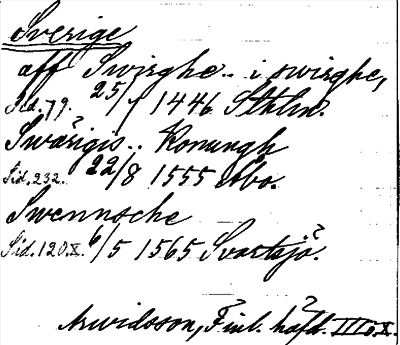 Sverige
aff Swirghe.. i swirghe,
Sid. 79. 25/1 1446 Sthlm.
Swärigis.. Konungh
Sid. 232. 22/8 1555 Åbo.
Swennsche
Sid. 120.X. 6/5 1565 Svartsjö.
Arwidsson, Finl. häfd. III o. X.